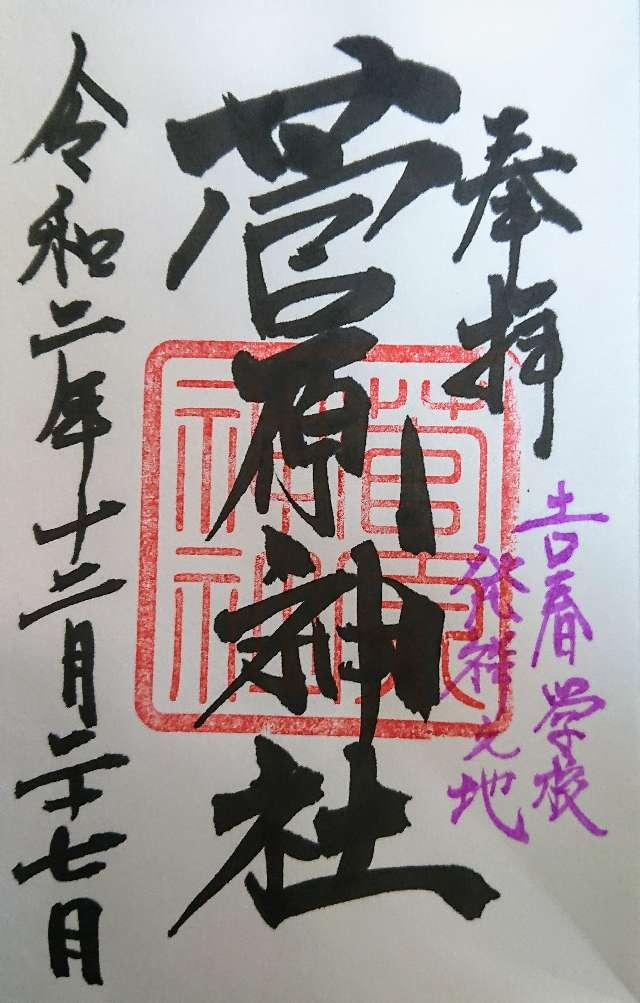 奉拝
吉春学校
発祥之地
菅原神社
菅原
神社
令和二年十二月二十七日